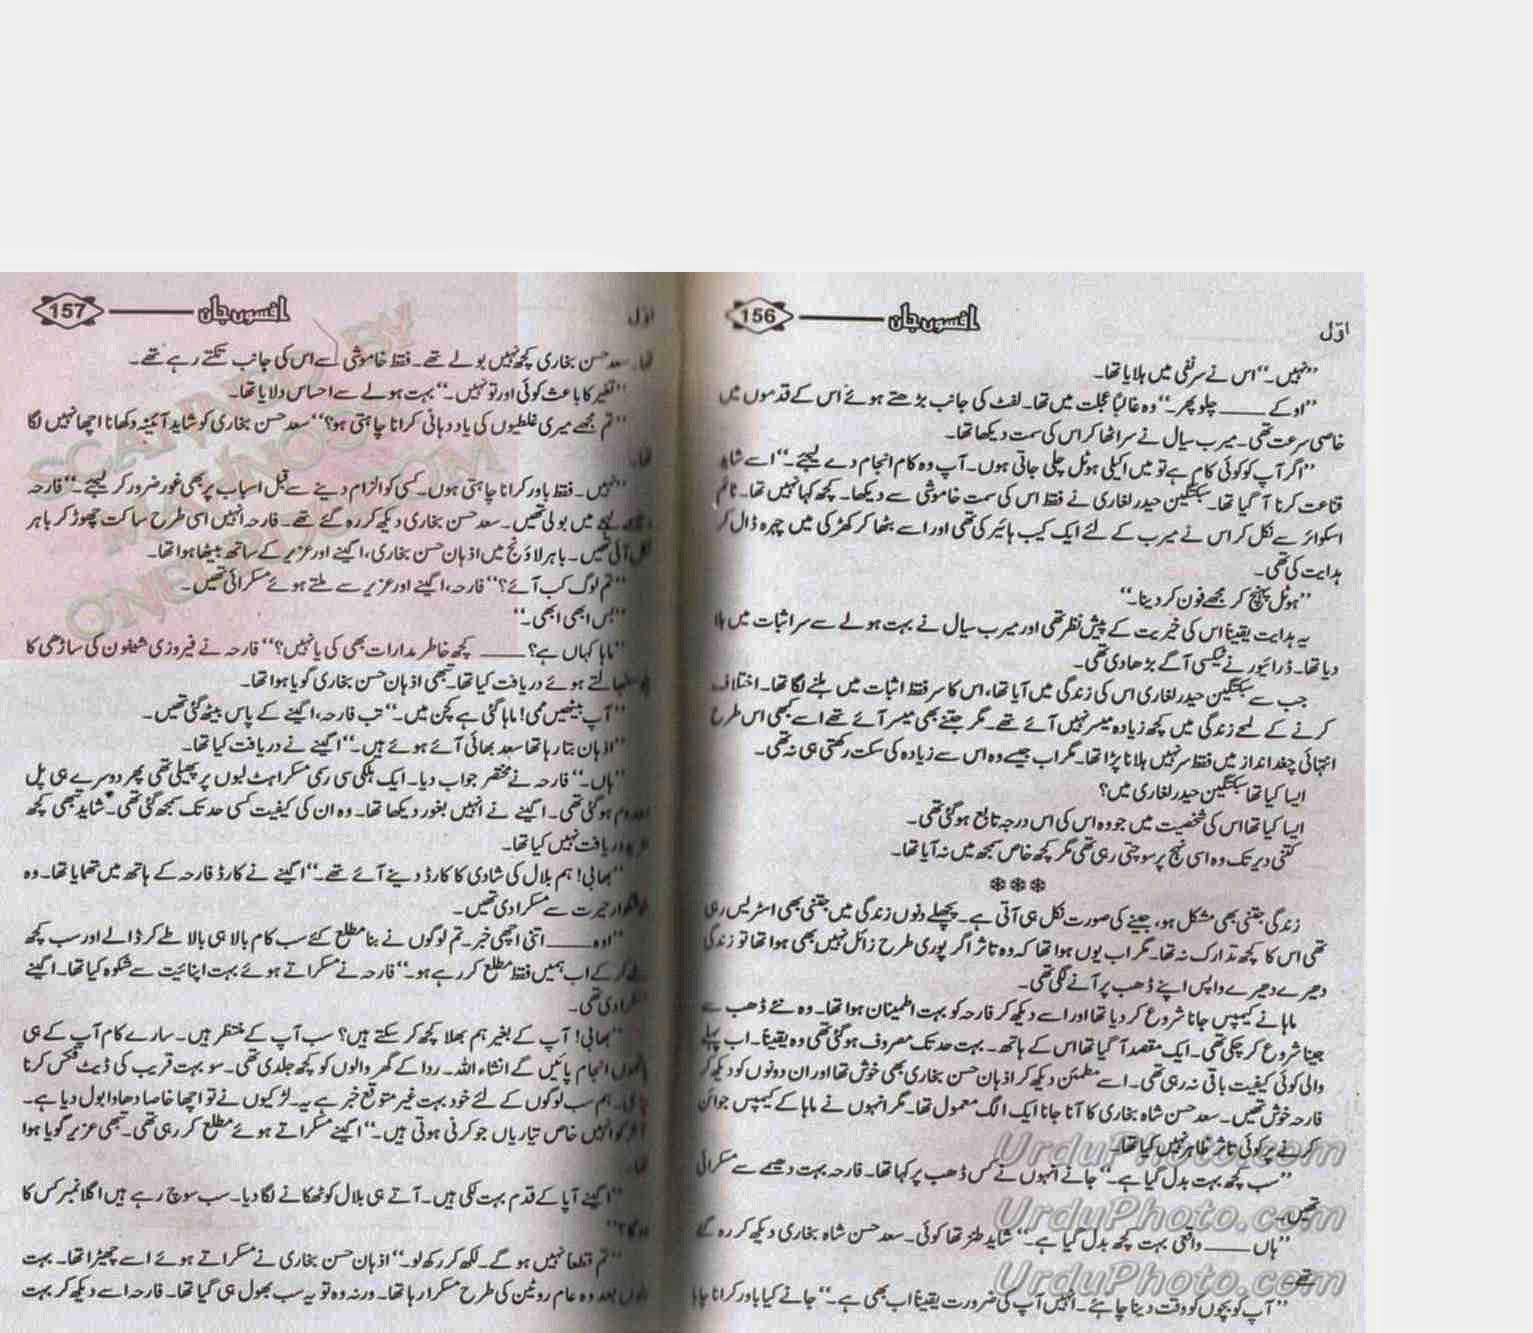 156 افسوں جاں اوّل
”نہیں۔“ اس نے سر نفی میں ہلایا تھا۔
”اوکے ____ چلو پھر۔“ وہ غالباً عجلت میں تھا۔ لفٹ کی جانب بڑھتے ہوئے اس کے قدموں میں
خاصی سرعت تھی۔ میرب سیال نے سر اٹھا کر اس کی سمت دیکھا تھا۔
”اگر آپ کو کوئی کام ہے تو میں اکیلی ہوٹل چلی جاتی ہوں۔ آپ وہ کام انجام دے لیجئے۔“ اسے شاید
قناعت کرنا آ گیا تھا۔ سبکتگین حیدر لغاری نے فقط اس کی سمت خاموشی سے دیکھا۔ کچھ کہا نہیں تھا۔ ٹائم
اسکوائر سے نکل کر اس نے میرب کے لئے ایک کیب ہائیر کی تھی اور اسے بٹھا کر کھڑکی میں چہرہ ڈال کر
ہدایت کی تھی۔
”ہوٹل پہنچ کر مجھے فون کر دینا۔“
یہ ہدایت یقیناً اس کی خیریت کے پیش نظر تھی اور میرب سیال نے بہت ہولے سے سر اثبات میں ہلا
دیا تھا۔ ڈرائیور نے ٹیکسی آگے بڑھا دی تھی۔
جب سے سبکتگین حیدر لغاری اس کی زندگی میں آیا تھا، اس کا سر فقط اثبات میں ہلنے لگا تھا۔ اختلاف
کرنے کے لمحے زندگی میں کچھ زیادہ میسر نہیں آئے تھے۔ مگر جتنے بھی میسر آئے تھے اسے کبھی اس طرح
انتہائی چغد انداز میں فقط سر نہیں ہلانا پڑا تھا۔ مگر اب جیسے وہ اس سے زیادہ کی سکت رکھتی ہی نہ تھی۔
ایسا کیا تھا سبکتگین حیدر لغاری میں؟
ایسا کیا تھا اس کی شخصیت میں جو وہ اس کی اس درجہ تابع ہو گئی تھی۔
کتنی دیر تک وہ اسی نہج پر سوچتی رہی تھی مگر کچھ خاص سمجھ میں نہ آیا تھا۔
❋❋❋
زندگی جتنی بھی مشکل ہو، جینے کی صورت نکل ہی آتی ہے۔ پچھلے دنوں زندگی میں جتنی بھی اسٹریس رہی
تھی اس کا کچھ تدارک نہ تھا۔ مگر اب یوں ہوا تھا کہ وہ تاثر اگر پوری طرح زائل نہیں بھی ہوا تھا تو زندگی
دھیرے دھیرے واپس اپنے ڈھب پر آنے لگی تھی۔
ماہا نے کیمپس جانا شروع کر دیا تھا اور اسے دیکھ کر فارحہ کو بہت اطمینان ہوا تھا۔ وہ نئے ڈھب سے
جینا شروع کر چکی تھی۔ ایک مقصد آ گیا تھا اس کے ہاتھ۔ بہت حد تک مصروف ہو گئی تھی وہ یقیناً۔ اب پہلے
والی کوئی کیفیت باقی نہ رہی تھی۔ اسے مطمئن دیکھ کر اذہان حسن بخاری بھی خوش تھا اور ان دونوں کو دیکھ کر
فارحہ خوش تھیں۔ سعد حسن شاہ بخاری کا آنا جانا ایک الگ معمول تھا۔ مگر انہوں نے ماہا کے کیمپس جوائن
کرنے پر کوئی تاثر ظاہر نہیں کیا تھا۔
”سب کچھ بہت بدل گیا ہے۔“ جانے انہوں نے کس ڈھب پر کہا تھا۔ فارحہ بہت دھیمے سے مسکرائی
تھیں۔
”ہاں ____ واقعی بہت کچھ بدل گیا ہے۔“ شاید طنز تھا کوئی۔ سعد حسن شاہ بخاری دیکھ کر رہ گئے
تھے۔
”آپ کو بچوں کو وقت دینا چاہئے۔ انہیں آپ کی ضرورت یقیناً اب بھی ہے۔“ جانے کیا باور کرانا چاہا
UrduPhoto.com
UrduPhoto.com
UrduPhoto.com
157 افسوں جاں اوّل
تھا۔ سعد حسن بخاری کچھ نہیں بولے تھے۔ فقط خاموشی سے اس کی جانب تکتے رہے تھے۔
”تغیر کا باعث کوئی اور تو نہیں۔“ بہت ہولے سے احساس دلایا تھا۔
”تم مجھے میری غلطیوں کی یاد دہانی کرانا چاہتی ہو؟“ سعد حسن بخاری کو شاید آئینہ دکھانا اچھا نہیں لگا
تھا۔
”نہیں۔ فقط باور کرانا چاہتی ہوں۔ کسی کو الزام دینے سے قبل اسباب پر بھی غور ضرور کر لیجئے۔“ فارحہ
لہجے میں بولی تھیں۔ سعد حسن بخاری دیکھ کر رہ گئے تھے۔ فارحہ انہیں اسی طرح ساکت چھوڑ کر باہر
نکل آئی تھیں۔ باہر لاؤنج میں اذہان حسن بخاری، اگینے اور عزیر کے ساتھ بیٹھا ہوا تھا۔
”تم لوگ کب آئے؟“ فارحہ، اگینے اور عزیر سے ملتے ہوئے مسکرائی تھیں۔
”بس ابھی ابھی۔“
”ماہا کہاں ہے؟ ____ کچھ خاطر مدارات بھی کی یا نہیں؟“ فارحہ نے فیروزی شیفون کی ساڑھی کا
پلو سنبھالتے ہوئے دریافت کیا تھا۔ تبھی اذہان حسن بخاری گویا ہوا تھا۔
”آپ بیٹھیں ممی! ماہا گئی ہے کچن میں۔“ تب فارحہ، اگینے کے پاس بیٹھ گئی تھیں۔
”اذہان بتا رہا تھا سعد بھائی آئے ہوئے ہیں۔“ اگینے نے دریافت کیا تھا۔
”ہاں۔“ فارحہ نے مختصر جواب دیا۔ ایک ہلکی سی رسمی مسکراہٹ لبوں پر پھیلی تھی پھر دوسرے ہی پل
معدوم ہو گئی تھی۔ اگینے نے انہیں بغور دیکھا تھا۔ وہ ان کی کیفیت کسی حد تک سمجھ گئی تھی۔ شاید تبھی کچھ
مزید دریافت نہیں کیا تھا۔
”بھابی! ہم بلال کی شادی کا کارڈ دینے آئے تھے۔“ اگینے نے کارڈ فارحہ کے ہاتھ میں تھمایا تھا۔ وہ
خوشگوار حیرت سے مسکرا دی تھیں۔
”اوہ ____ اتنی اچھی خبر۔ تم لوگوں نے بنا مطلع کئے سب کام بالا ہی بالا طے کر ڈالے اور سب کچھ
طے کر کے اب ہمیں فقط مطلع کر رہے ہو۔“ فارحہ نے مسکراتے ہوئے بہت اپنائیت سے شکوہ کیا تھا۔ اگینے
مسکرا دی تھی۔
”بھابی! آپ کے بغیر ہم بھلا کچھ کر سکتے ہیں؟ سب آپ کے منتظر ہیں۔ سارے کام آپ کے ہی
ہاتھوں انجام پائیں گے انشاء اللہ۔ ردا کے گھر والوں کو کچھ جلدی تھی۔ سو بہت قریب کی ڈیٹ فکس کرنا
پڑی۔ ہم سب لوگوں کے لئے خود بہت غیر متوقع خبر ہے یہ۔ لڑکیوں نے تو اچھا خاصا دھاوا بول دیا ہے۔
آخر کو انہیں خاص تیاریاں جو کرنی ہوتی ہیں۔“ اگینے مسکراتے ہوئے مطلع کر رہی تھی۔ تبھی عزیر گویا ہوا
تھا۔
”اگینے آپا کے قدم بہت لکی ہیں۔ آتے ہی بلال کو ٹھکانے لگا دیا۔ سب سوچ رہے ہیں اگلا نمبر کس کا
ہو گا؟“
”تم قطعاً نہیں ہو گے۔ لکھ کر رکھ لو۔“ اذہان حسن بخاری نے مسکراتے ہوئے اسے چھیڑا تھا۔ بہت
دنوں بعد وہ عام روٹین کی طرح مسکرا رہا تھا۔ ورنہ وہ تو یہ سب بھول ہی گیا تھا۔ فارحہ اسے دیکھ کر بہت